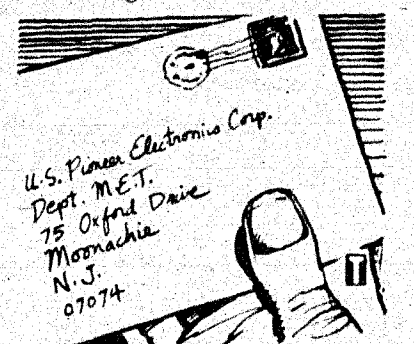 U.S. Pioneer Electronics Corp.
Dept. M.E.T.
75 Oxford Drive
Moonachie
N.J.
07074